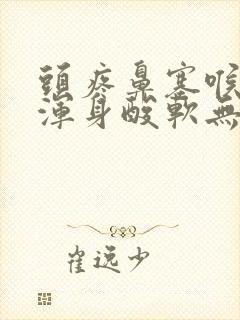 頭疼鼻塞喉
渾身酸軟無
崔逸少